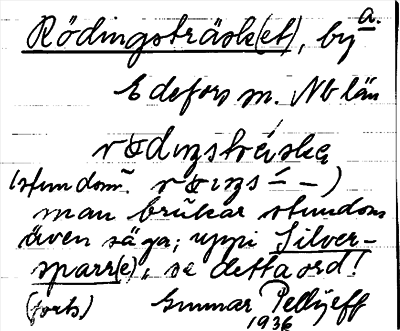 Rödingsträsk(et), by a.
Edefors sn. Nb län
(stundom
man brukar stundom
även säga; uppi Silver-
sparr(e), se detta ord!
(forts) Gunnar Pellijeff
1936